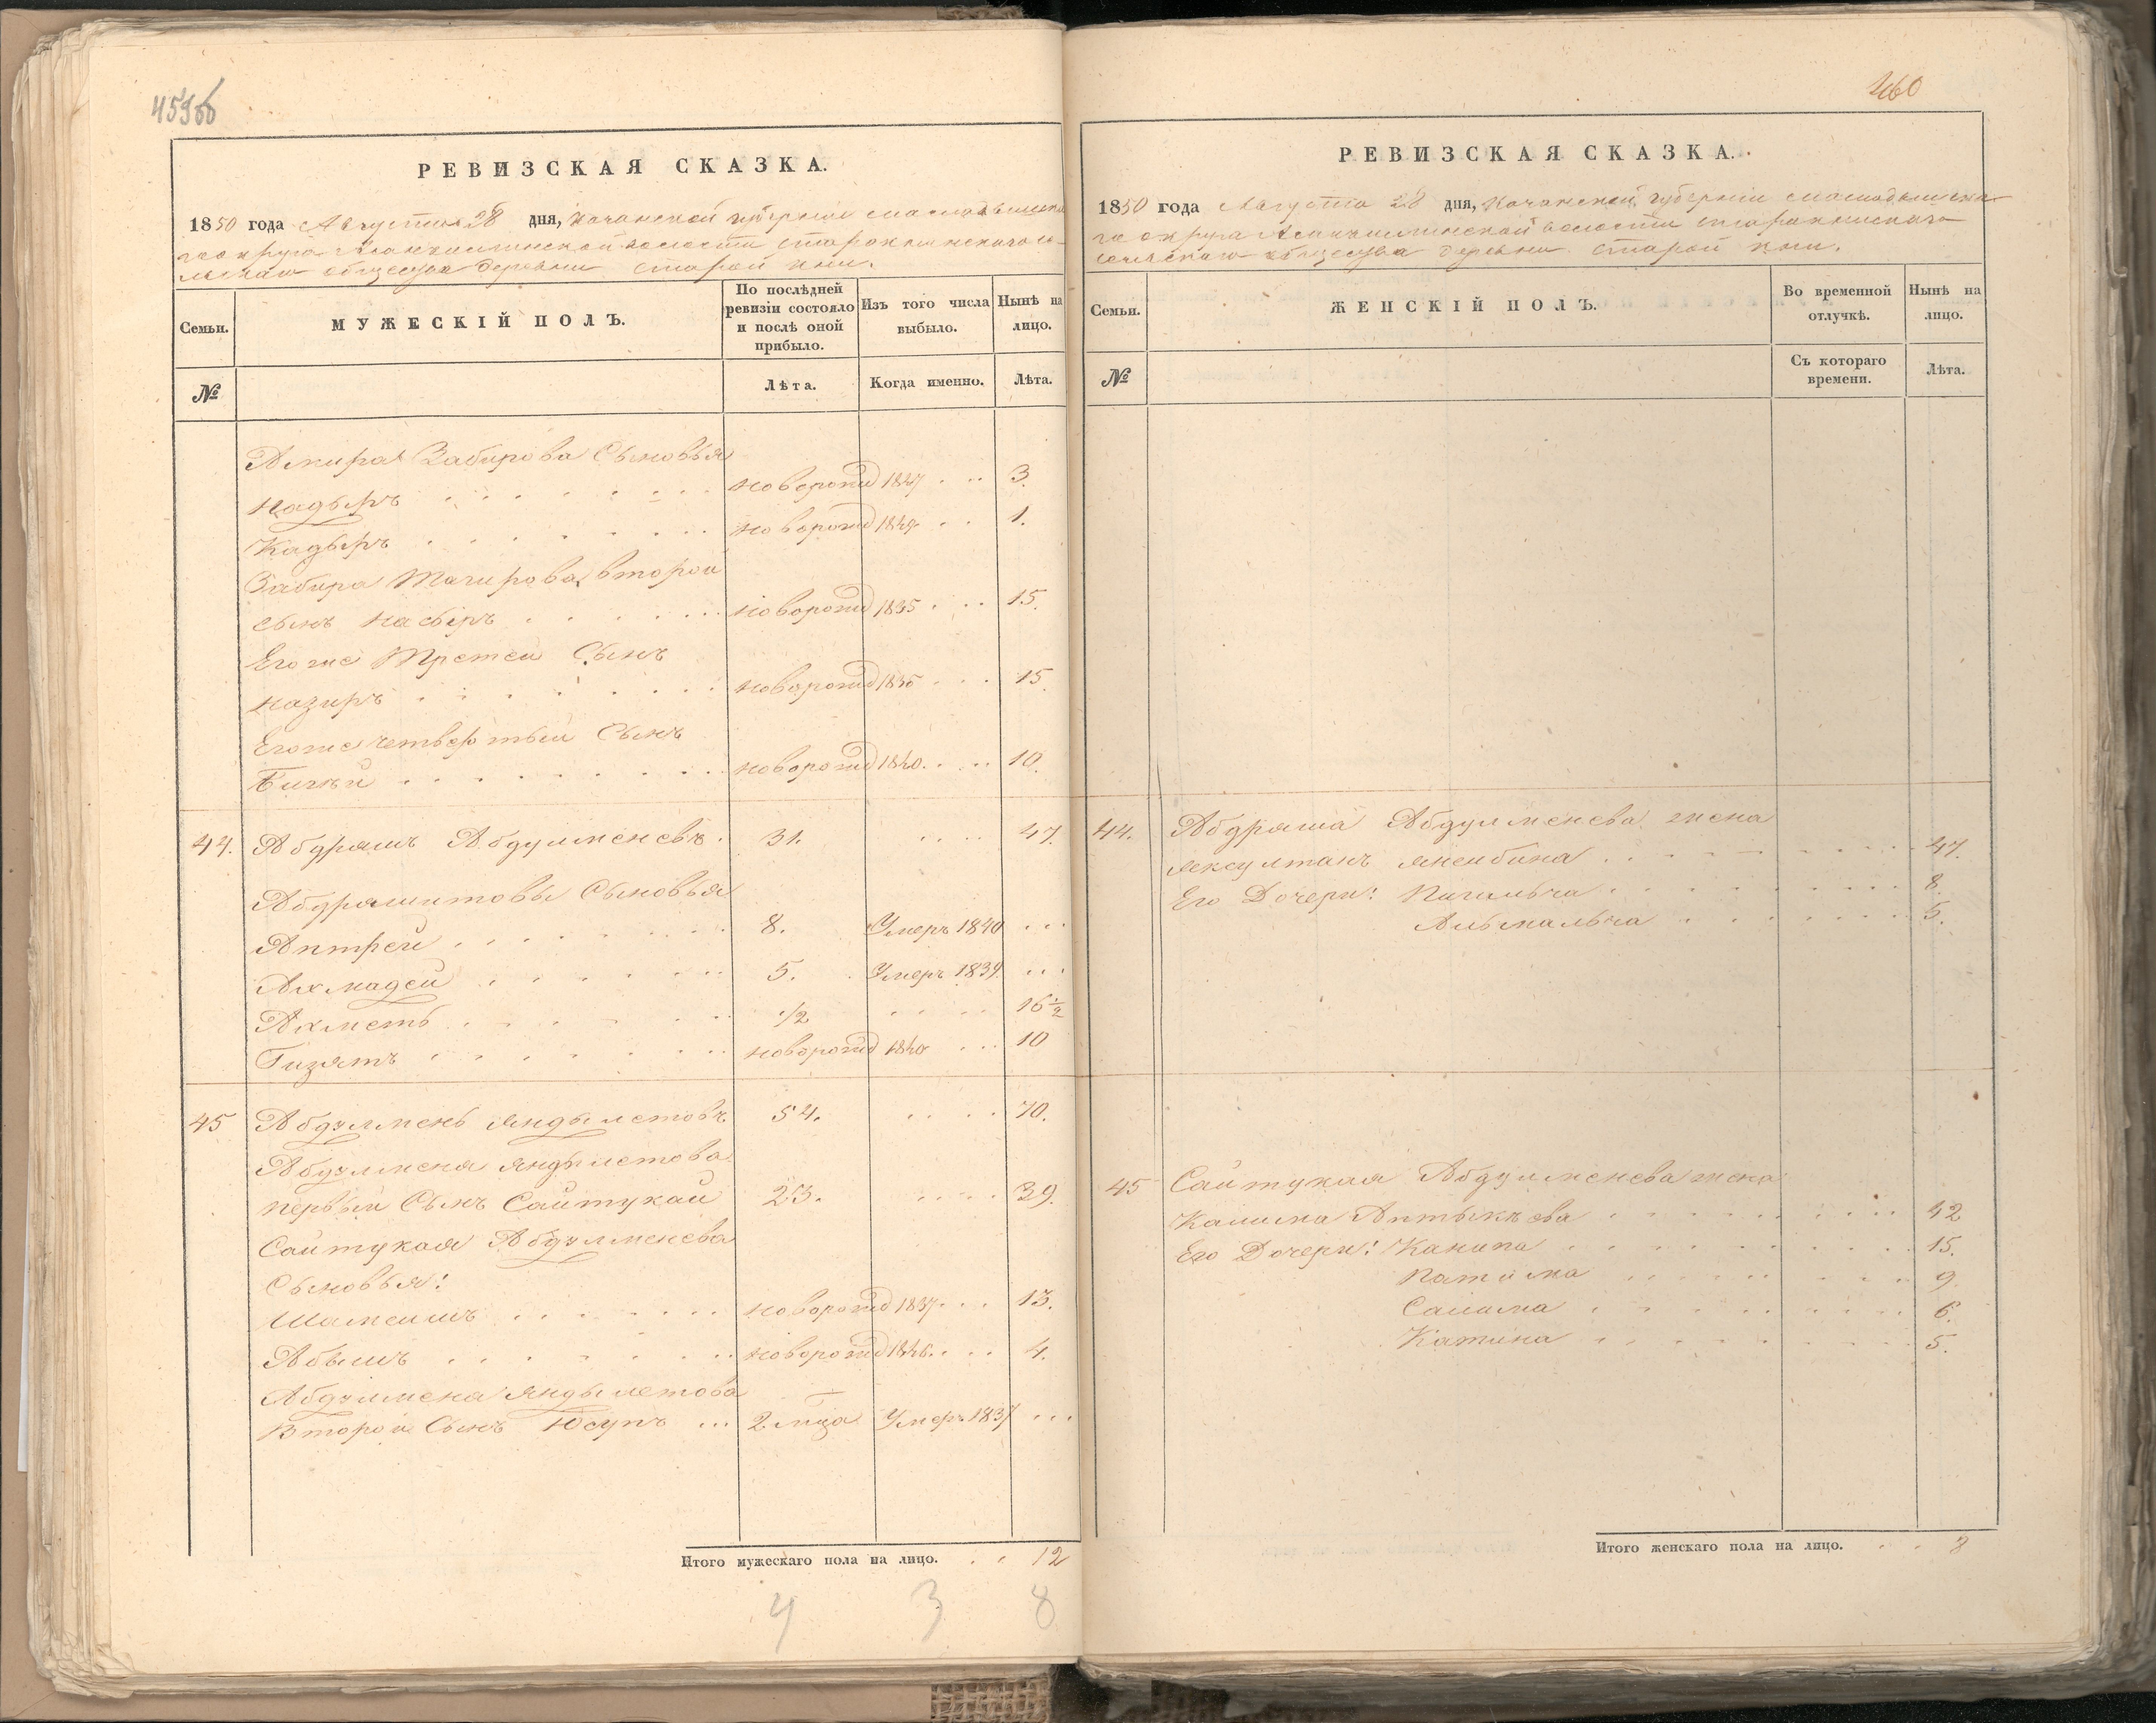 459об
РЕВИЗСКАЯ СКАЗКА.
1850 года Августа 28 дня, Казанской губернии
округа волости
общества деревни Старой Кни.
Семьи.
МУЖЕСКІЙ ПОЛЪ.
По послѣдней ревизіи состояло и послѣ оной прибыло.
Изъ того числа выбыло.
Нынѣ на лицо.
№
Лѣта.
Когда именно.
Лѣта.
Амира Забирова Сыновья
Надыръ новорожд 1847 3.
Кадыръ новорожд 1849 1.
Забира Тагирова второй
сынъ Насыръ новорожд 1835 15.
Егоже Третей Сынъ
Назиръ новорожд 1835 15.
Егоже четвертый Сынъ
новорожд 1840 10.
44. Абдрашъ Абдулменевъ. 31. 47.
Абдрашитовы Сыновья
Аптрей 8. Умеръ 1840
Ахмадей 5. Умеръ 1839.
Ахметь 1/2 16 1/2
Гизятъ новорожд 1840 10
45 Абдулмень Яндылетовъ 54. 70.
Абдулменя Яндылетова
первый Сынъ Сайтукай 23. 39.
Сайтукая Абдулменева
Сыновья:
Шамсишъ новорожд 1837 13.
Абышъ новорожд 1846. 4.
Абдулмена Яндылетова
Второй Сынъ Юсупъ 2 мца Умеръ 1837
Итого мужескаго пола на лицо. 12
4 3 8
460
РЕВИЗСКАЯ СКАЗКА.
1850 года Августа 28 дня, Казанской губерніи
округа волости
сельскаго общества деревни Старой Кни.
Семьи.
ЖЕНСКІЙ ПОЛЪ.
Во временной отлучкѣ.
Нынѣ на лицо.
№
Съ котораго времени.
Лѣта.
44. Абдраша Абдулменева жена
Яксултанъ 47.
Его Дочери: 8.
Альмальча 5.
45 Сайтукая Абдулменева жена
Калима Аптыкѣева 42
Его Дочери: Канипа 15.
Патима 9
Салима 6.
Катина 5.
Итого женскаго пола на лицо. 8